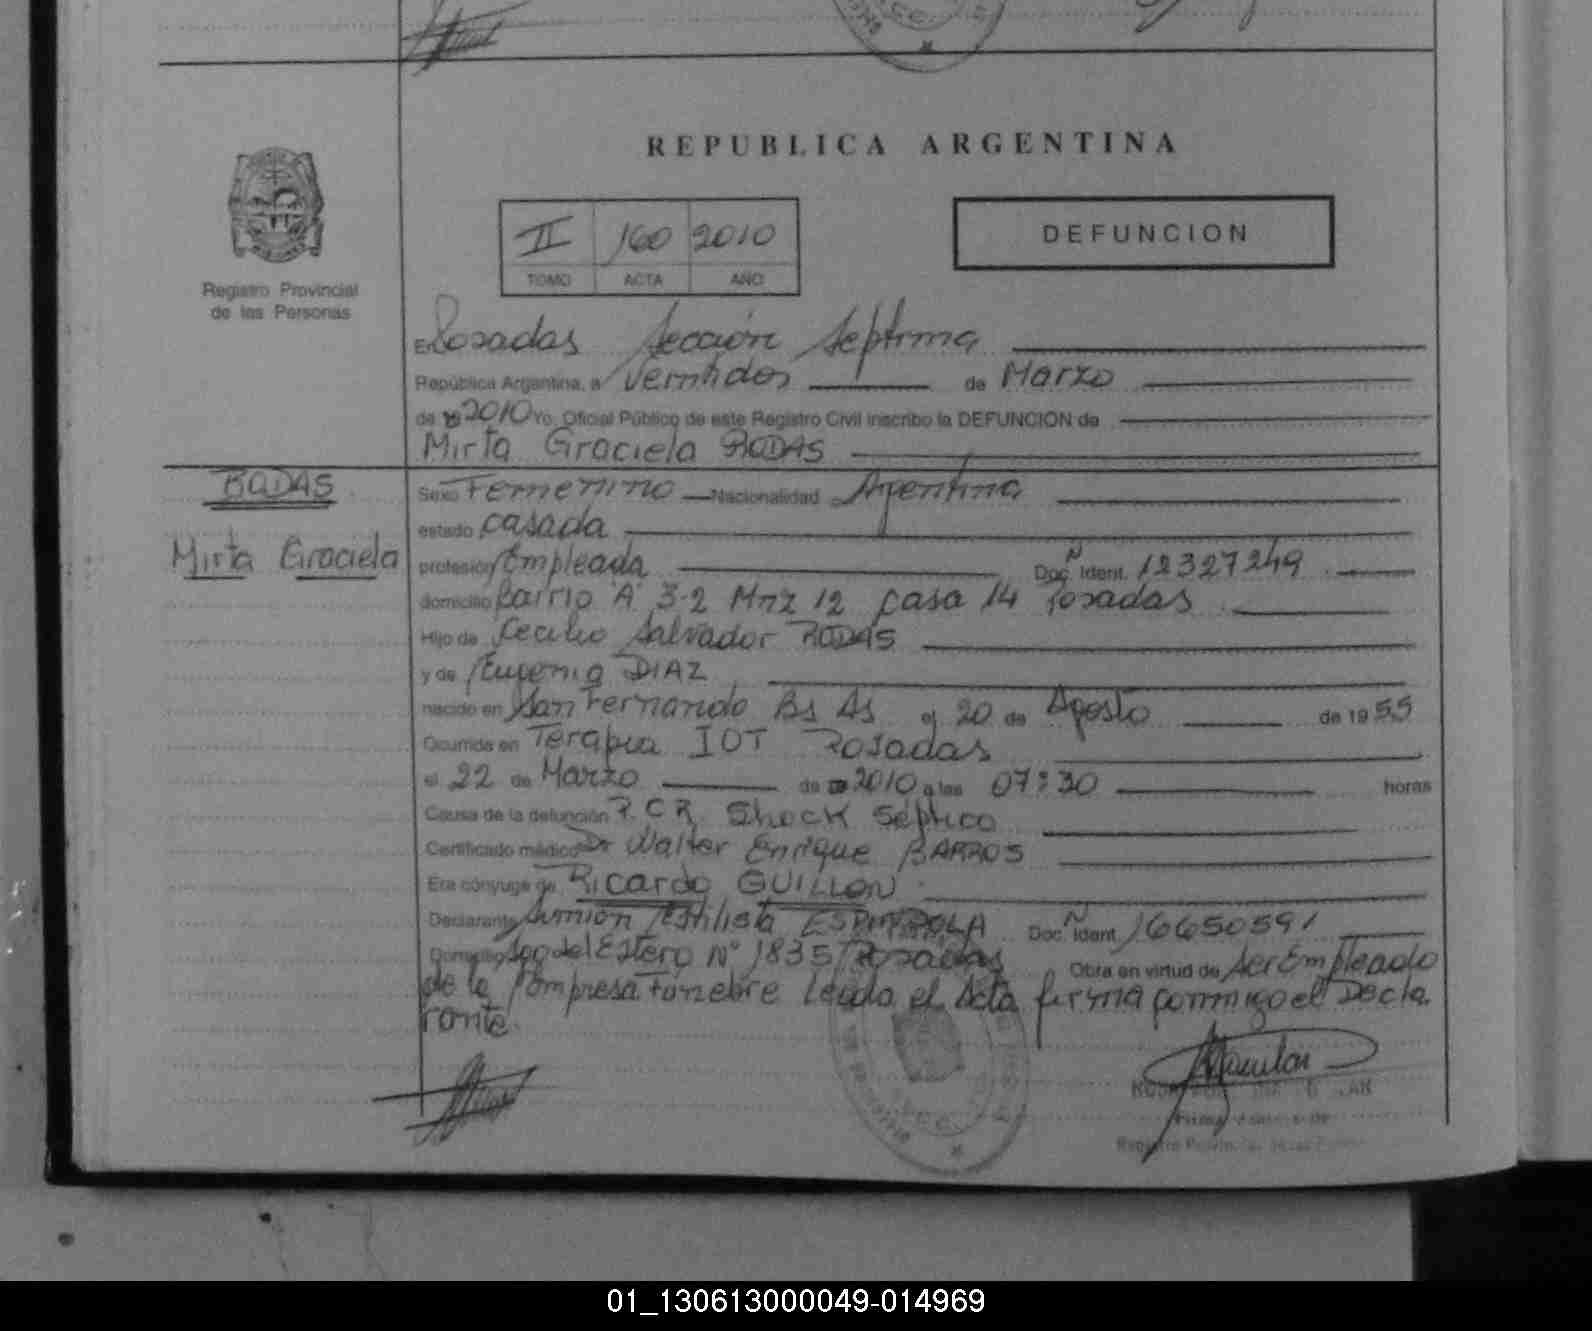 REPUBLICA ARGENTINA
II 160 2010
TOMO ACTA AÑO
DEFUNCION
Registro Provincial
de las Personas
En Posadas Sección Séptima
República Argentina, a Veintidos de Marzo
de 19 2010 Yo, Oficial Público de este Registro Civil inscribo la DEFUNCION de
Mirta Graciela RODAS
RODAS
Mirta Graciela
Sexo Femenino Nacionalidad Argentina
estado Casada
profesión Empleada Doc. Ident. Nº 12327249
domicilio Barrio "A" 3-2 Mnz 12 Casa 14 Posadas
Hijo de Cecilio Salvador RODAS
y de Eugenia DIAZ
nacido en San Fernando Bs As el 20 de Agosto de 1955
Ocurrida en Terapia IOT Posadas
el 22 de Marzo de 19 2010 a las 07:30 horas
Causa de la defunción P.C.R. Shock Séptico
Certificado médico Dr Walter Enrique BARROS
Era cónyuge de Ricardo GUILLON
Declarante ESPINDOLA Doc. Ident. Nº 16650591
Domicilio Sgo del Estero Nº 1835 Posadas Obra en virtud de Ser Empleado
de la Empresa Fúnebre Leida el Acta firma conmigo el Decla
rante.
01_130613000049-014969